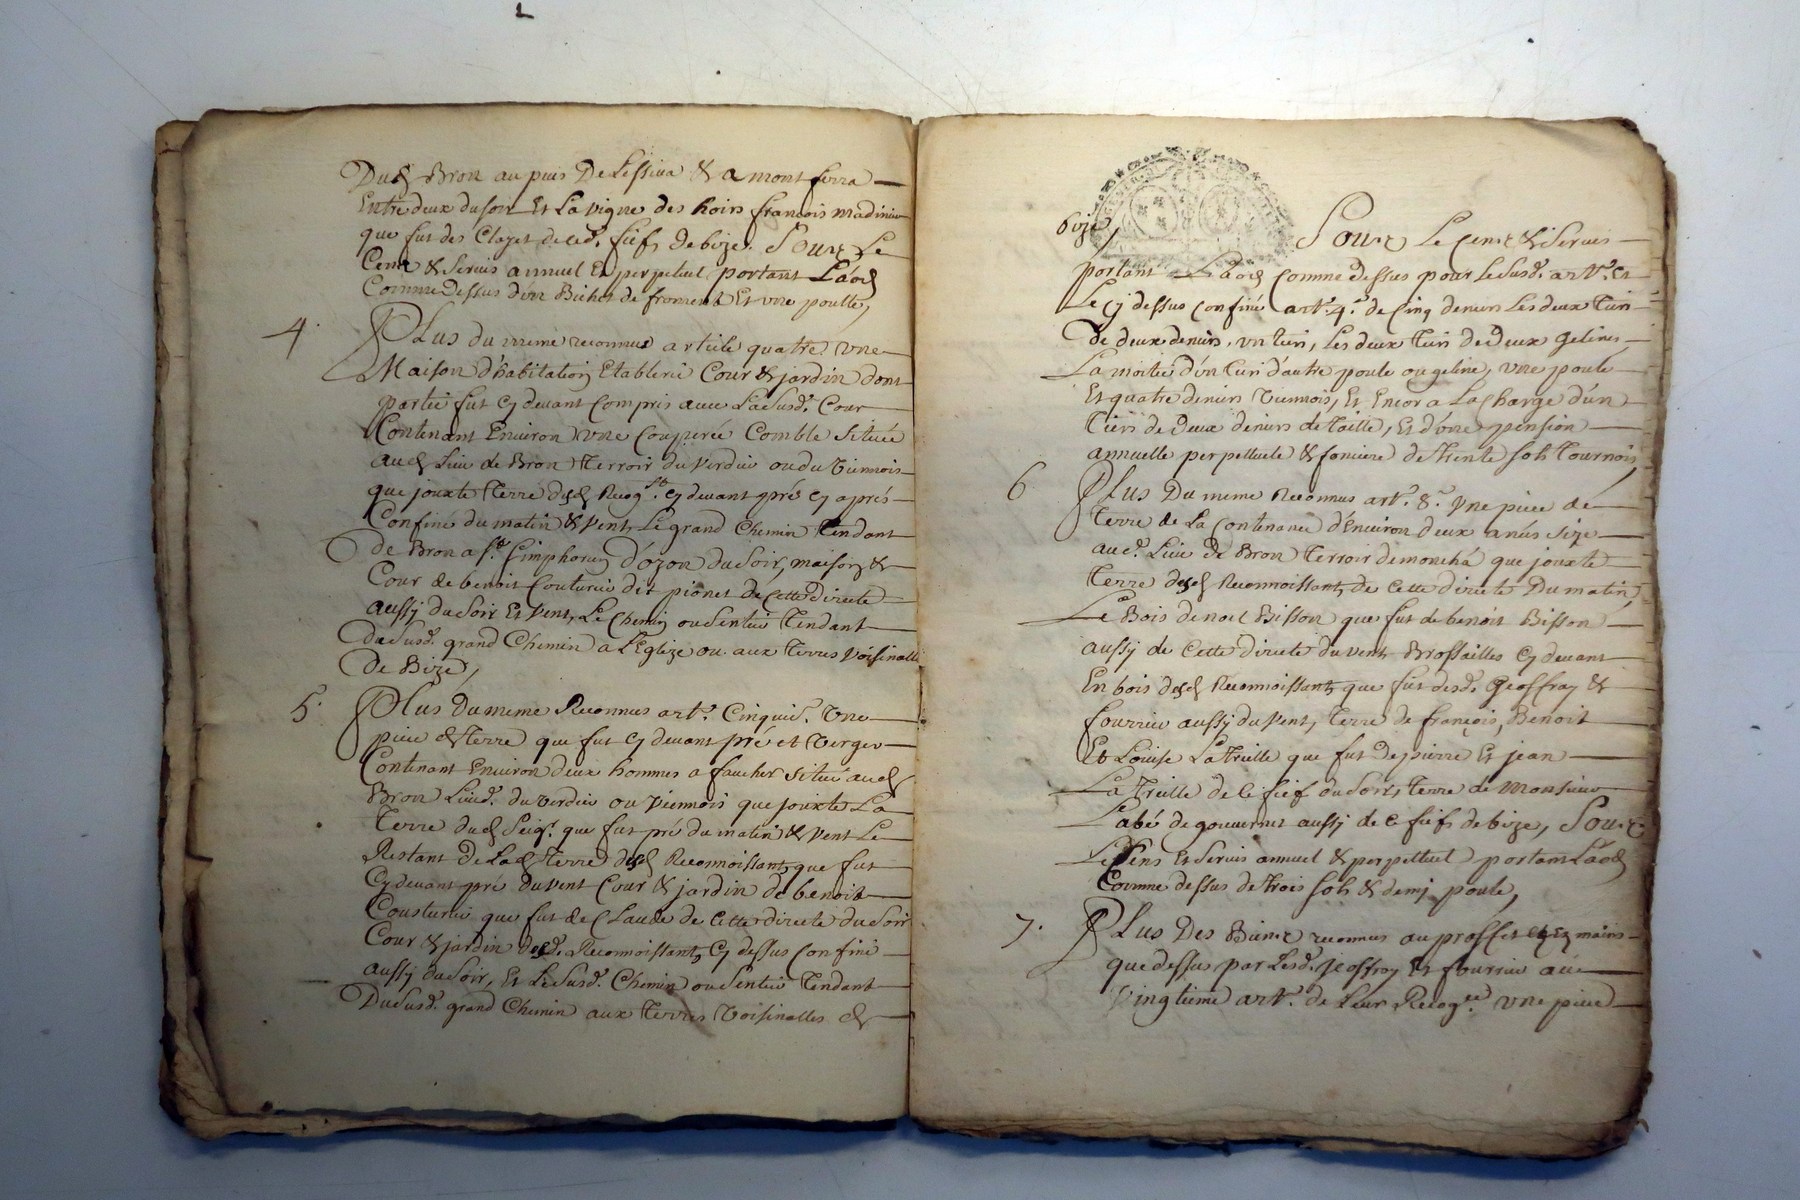 Dud Bron au puis De Lessiua & a mont ferra
Entre deux du soir Et La vigne des hoirs francois madinier
que fut des Clapet de ced. fiefs de bize. Souz Le
Cens & Seruis annuel Et perpetuel portant Laod
Comme Dessus d'un Bichet de froment Et vne poulle,
4. Plus du meme reconnus article quatre vne
Maison d'habitation Etablerie Cour & jardin dont
partie fut Cy deuant Compris auec La susd. Cour
Contenant Enuiron vne Couperée Comble Située
aud Lieu de Bron Terroir du Verdier ou du Viennois
que jouxte Terre desd Recog.ts Cy deuant pré Cy aprés
Confiné du matin & Vent, Le grand Chemin Tendant
de Bron a S.t Cimphorien d'ozon du Soir, maison &
Cour de benoit Couturier dit pionet de Cette directe
aussy du Soir Et Vent, Le Chemin ou Sentier Tendant
du Susd. grand Chemin a L'Eglize ou aux Terres Voisinalles
De Bize,
5. Plus du meme Reconnus art.e Cinquie. Vne
piece de Terre que fut Cy deuant pré et Verger
Contenant Enuiron deux hommes a faucher Situé aud
Bron Lieud. du Verdier ou Viennois que jouxte La
Terre dud Seig.r que fut pré du matin & Vent Le
Restant de Lad Terre desd Reconnoissants que fut
Cy deuant pré du Vent Cour & jardin de benoit
Cousturier que fut de Claude de Cette directe du Soir
Cour & jardin desd. Reconnoissants Cy dessus Confiné
aussy du Soir, Et Le Susd. Chemin ou Sentier Tendant
Du Susd. grand Chemin aux Terres Voisinalles de
bize, Souz Le Cens & Seruis
portant Laod Comme Dessus pour Le Susd. art.e Et
Le Cy dessus Confiné art.e 4.e de Cinq deniers Les deux Tiers
de deux deniers, vn tiers, Les deux Tiers de Deux gelines,
La moitié d'vn Tiers d'autre poule ou geline, vne poule
Et quatre deniers Viennois, Et Encor a La Charge d'un
Tiers de Deux deniers de Taille, Et d'vne pension
annuelle perpetuele & fonciere de trente sols Tournois,
6 Plus Du meme Reconnus art.e 8.e Vne piece de
Terre de La Contenance d'Enuiron deux anées Size
aud. Lieu de Bron Terroir de moncha que jouxte
Terre desd Reconnoissants de Cette directe Du matin,
Le Bois de noel Bisson que fut de benoit Bisson
aussy de Cette directe du vent, Brossailles Cy deuant
En bois desd Reconnoissants que fut desd. Geoffray &
fourrier aussy du Vent, Terre de françois, Benoit
Et Louise Latreille que fut de pierre Et jean
La Treille de Ce fief du Soir, Terre de Monsieur
L'abé de gouuernet aussy de Ce fiefs de bize, Souz
Le Cens Et Seruis annuel & perpetuel portant Laod
Comme dessus de trois sols & demj poule,
7. Plus Des Biens reconnus au proffit Et Es mains
que dessus par Lesd. Jeoffray Et fourrier au
Vingtieme art.e de Leur Recog.ce vne piece